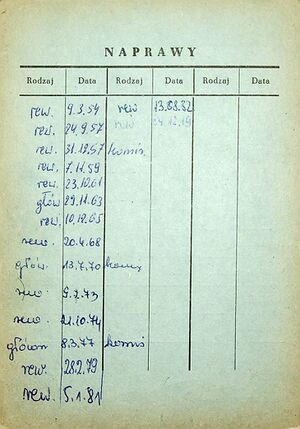 NAPRAWY
Rodzaj Data Rodzaj Data Rodzaj Data
rew. 9.3.54 rew 13.08.82
rew. 24.9.57 rew
rew. 31.12.57 komis.
rew. 7.11.59
rew. 23.10.61
głów 29.11.63
rew. 10.12.65
rew. 20.4.68
głów. 13.7.70
rew. 9.2.73
rew. 21.10.74
główn 8.3.77 komis
rew. 28.2.79
rew. 5.1.81